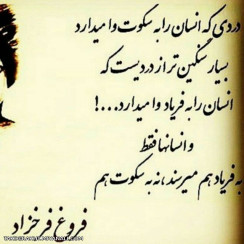 دردی که انسان را به سکوت وا میدارد
بسیار سنگین تر از دردیست که
انسان را به فریاد وا میدارد...!
و انسانها فقط
به فریاد هم میرسند، نه به سکوت هم
فروغ فرخزاد